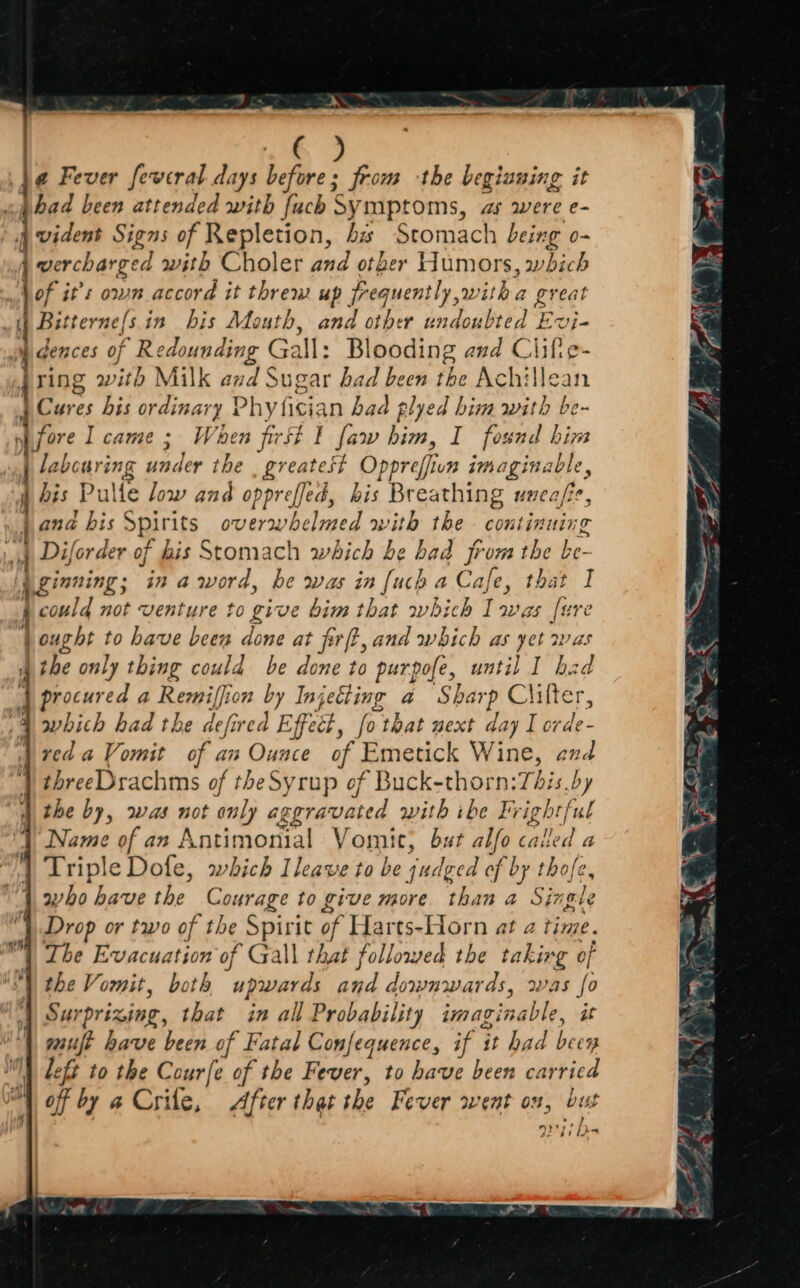 ( )
a Fever ſeveral days before; from the beginning it
had been attended with ſuch Symptoms, as were e-
vident Signs of Repletion, his Stomach being o-
vercharged with Choler and other Humors, which
of it's own accord it threw up frequently, with a great
Bitterneſs in his Mouth, and other undoubted Evi-
dences of Redounding Gall: Blooding and Cliſte-
ring with Milk and Sugar had been the Achillean
Cures his ordinary Phyſician had plyed him with be-
fore I came; When firſt I ſaw him, I found him
labouring under the greateſt Oppreſſion imaginable,
his Pulſe low and oppreſſed, his Breathing uneaſie,
and his Spirits overwhelmed with the continuing
Diſorder of his Stomach which he had from the be-
ginning; in a word, he was in ſuch a Caſe, that I
could not venture to give him that which I was ſure
ought to have been done at firſt, and which as yet was
the only thing could be done to purpoſe, until I had
procured a Remiſſion by Injecting a Sharp Cliſter,
which had the deſired Effect, ſo that next day I orde-
red a Vomit of an Ounce of Emetick Wine, and
three Drachms of the Syrup of Buck-thorn: This by
the by, was not only aggravated with the Frightful
Name of an Antimonial Vomit, but alſo called a
Triple Doſe, which I leave to be judged of by thoſe,
who have the Courage to give more than a Single
Drop or two of the Spirit of Harts-Horn at a time.
The Evacuation of Gall that followed the taking of
the Vomit, both upwards and downwards, was ſo
Surprizing, that in all Probability imaginable, it
muſt have been of Fatal Conſequence, if it had been
left to the Courſe of the Fever, to have been carried
off by a Criſe, After that the Fever went on, but
with-